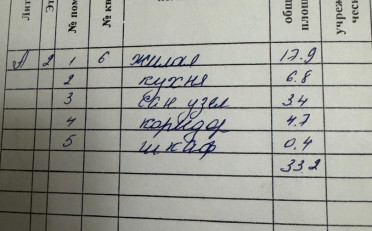 Лит
Эт
№ пом
№ кв
общ
площ
учреж
ческ
А 2 1 6 жилая 17.9
2 кухня 6.8
3 сан узел 34
4 коридор 4.7
5 шкаф 0.4
33.2